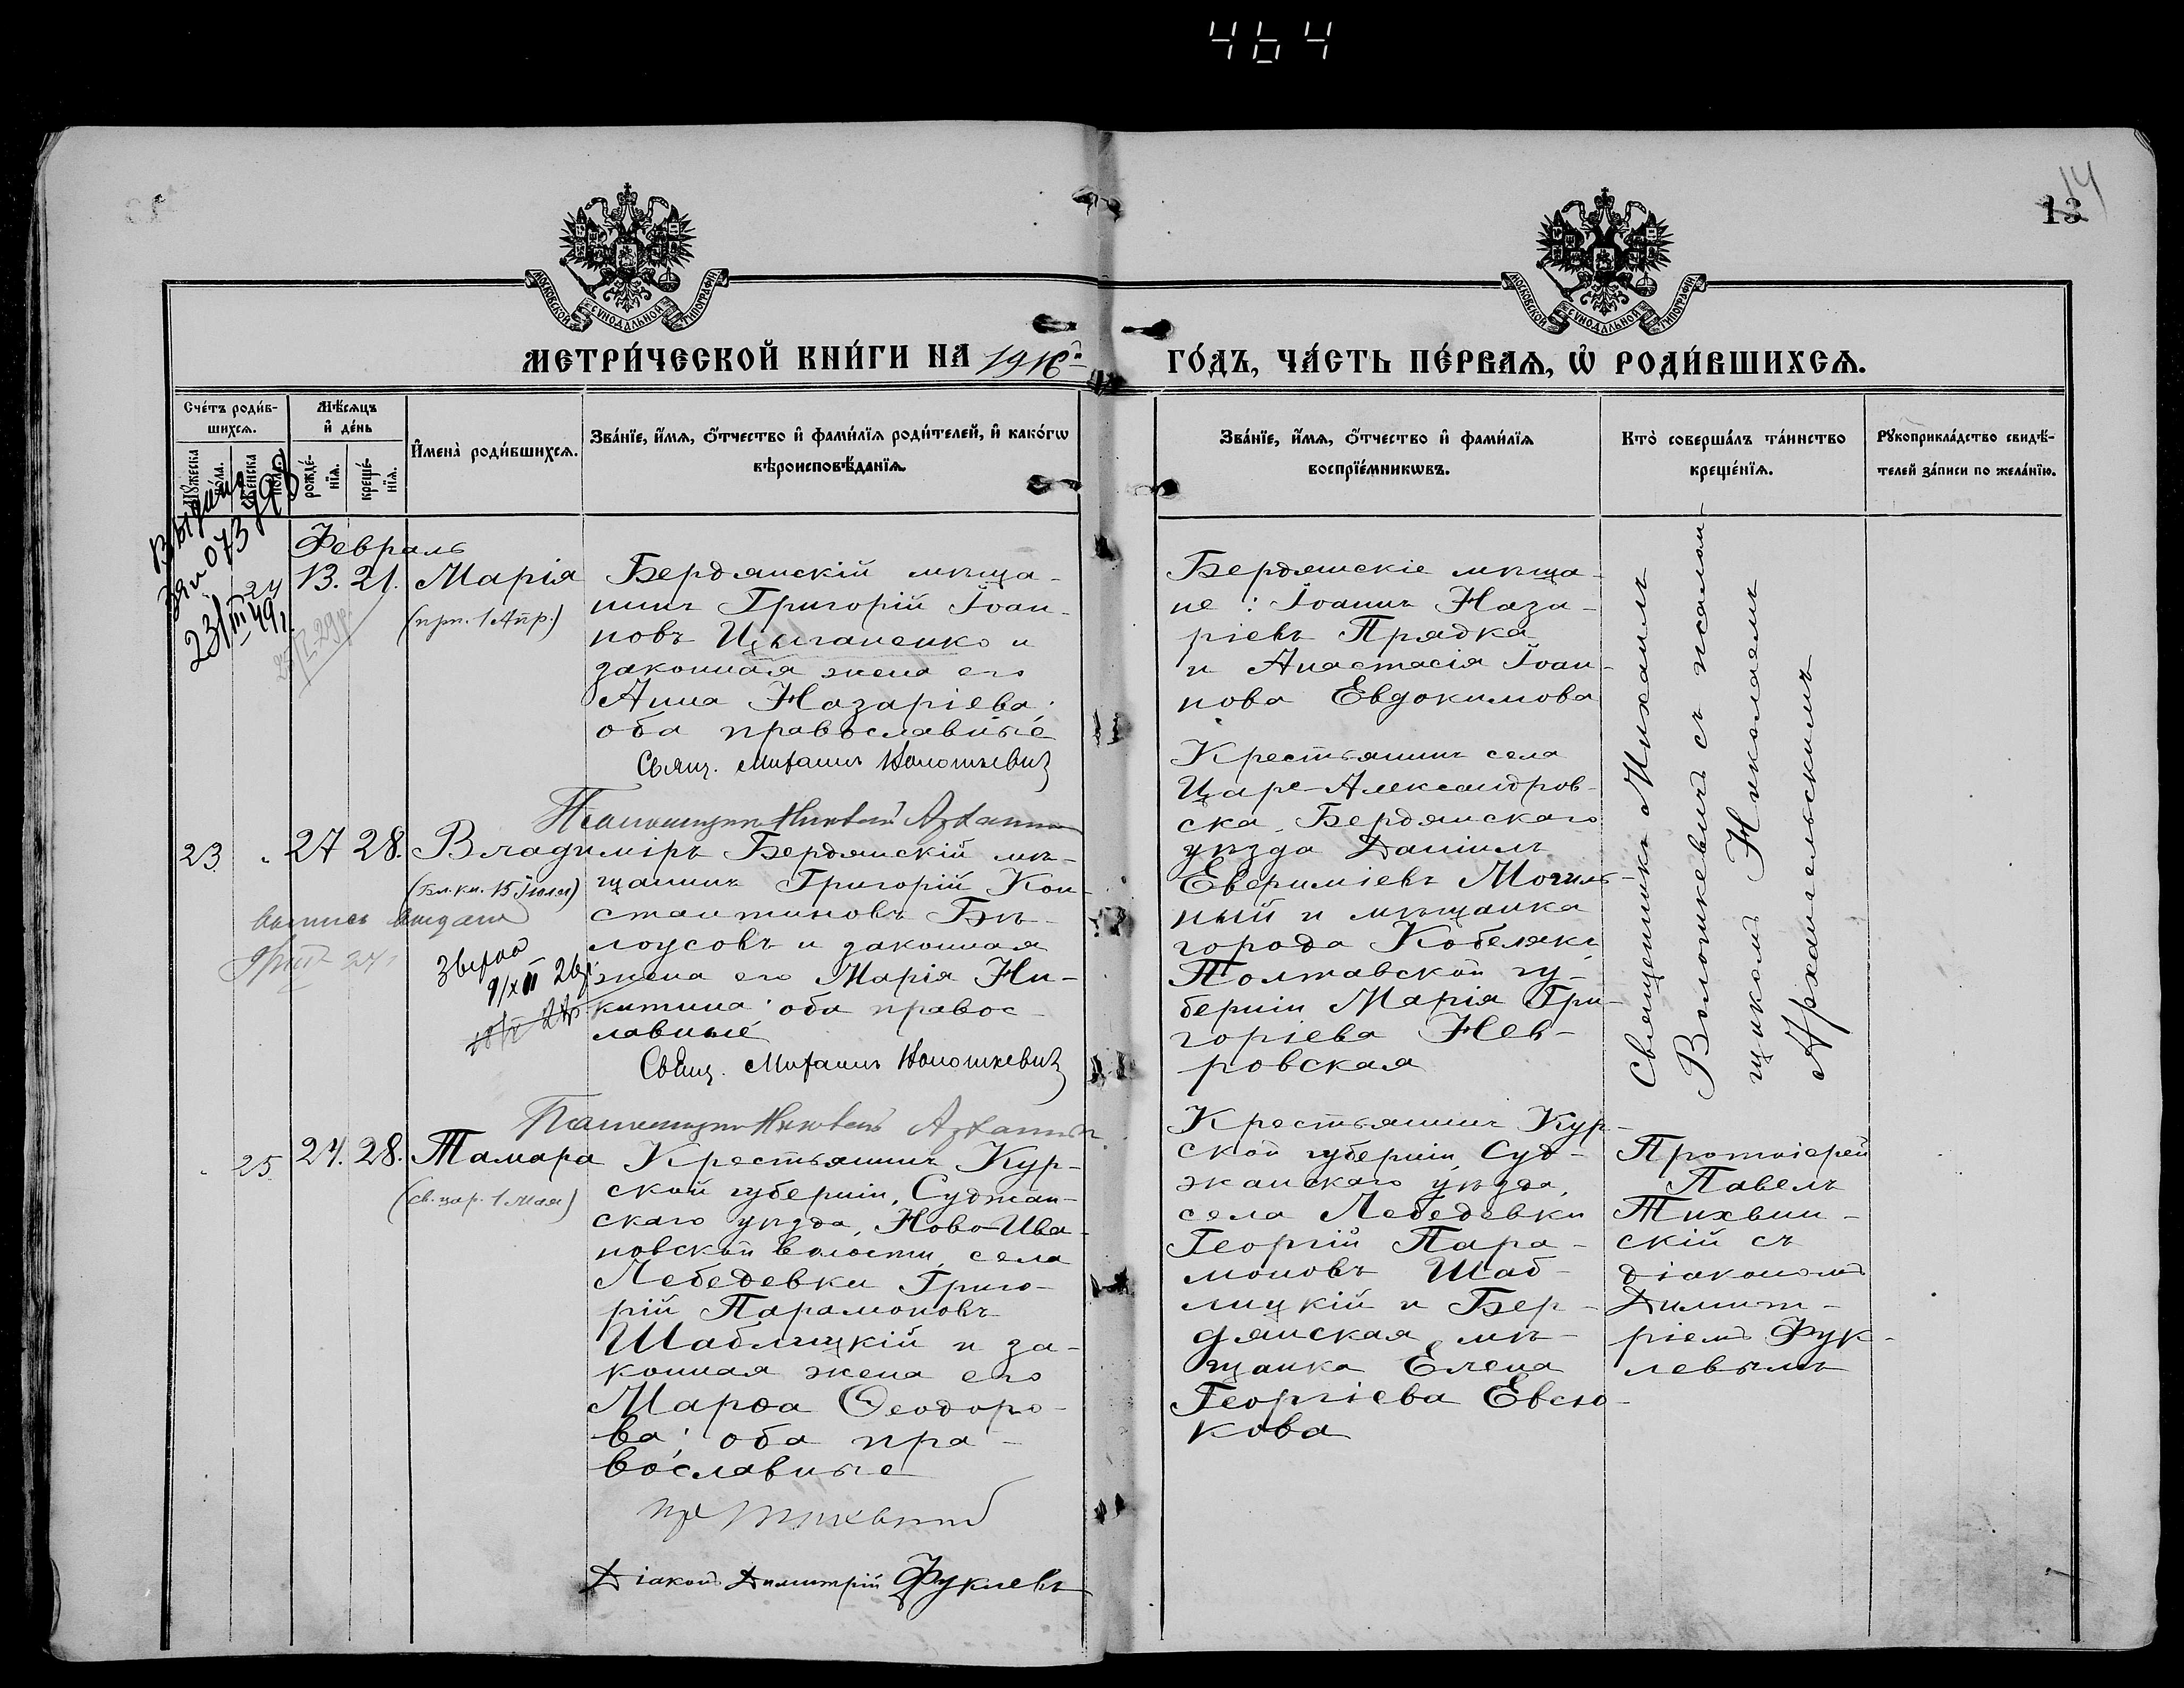 464
14
13
МОСКОВСКОЙ СѴНОДАЛЬНОЙ ТИПОГРАФІИ
МОСКОВСКОЙ СѴНОДАЛЬНОЙ ТИПОГРАФІИ
МЕТРИ́ЧЕСКОЙ КНИ́ГИ НА 1916й ГО́ДЪ, ЧА́СТЬ ПЕ́РВАѦ, Ѡ҆ РОДИ́ВШИХСѦ.
Сче́тъ роди́в-
шихсѧ.
Мѣ́сѧцъ
и҆ де́нь
Мꙋжеска
пола.
Женска
пола.
рожде́-
нїѧ.
креще́-
нїѧ.
И҆мена̀ роди́вшихсѧ.
Зва́нїе, и҆́мѧ, ѻ҆́тчество и҆ фами́лїѧ роди́телей, и҆ како́гѡ
вѣроисповѣ́данїѧ.
Зва́нїе, и҆́мѧ, ѻ҆́тчество и҆ фами́лїѧ
воспрїе́мникѡвъ.
Кто̀ соверша́лъ та́инство
креще́нїѧ.
Рꙋкоприкла́дство свидѣ́-
телей за́писи по жела́нїю.
23/III 49г.
Февраль
24
13. 21.
Марія
(прп. 1 Апр.)
Бердянскій мѣща-
нинъ Григорій Іоан-
новъ Цыганенко и
законная жена его
Анна Назаріева;
оба православные
Свящ. Михаилъ Волошкевичъ
Псаломщикъ Николай Архан
Бердянскіе мѣща-
не: Іоаннъ Наза-
ріевъ Прядка
и Анастасія Іоан-
нова Евдокимова
Священникъ Михаилъ
Волошкевичъ съ псалом-
щикомъ Николаемъ
Архангельскимъ
23
27 28.
Владиміръ
(Бл. кн. 15 Іюля)
выпись выдана
Бердянскій мѣ-
щанинъ Григорій Кон-
стантиновъ Бѣ-
лоусовъ и законная
жена его Марія Ни-
китина; оба правос-
лавные
Свящ. Михаилъ Волошкевичъ
Псаломщикъ Николай Архангел
Крестьянинъ села
Царе-Александров-
ска, Бердянскаго
уѣзда Даніилъ
Евфиміевъ Могиль-
ный и мѣщанка
города Кобелякъ
Полтавской гу-
берніи Марія Гри-
горіева Нев-
ровская
25
24. 28.
Тамара
(св. цар. 1 Мая)
Крестьянинъ Кур-
ской губерніи, Суджан-
скаго уѣзда, Ново-Ива-
новской волости, села
Лебедевки Григо-
рій Парамоновъ
Шаблицкій и за-
конная жена его
Марѳа Ѳеодоро-
ва; оба пра-
вославные
Діаконъ Димитрій Фуклевъ
Крестьянинъ Кур-
ской губерніи, Суд-
жанскаго уѣзда,
села Лебедевки
Георгій Пара-
моновъ Шаб-
лицкій и Бер-
дянская мѣ-
щанка Елена
Георгіева Евсю-
кова
Протоіерей
Павелъ
Тихвин-
скій съ
діакономъ
Димит-
ріемъ Фук-
левымъ